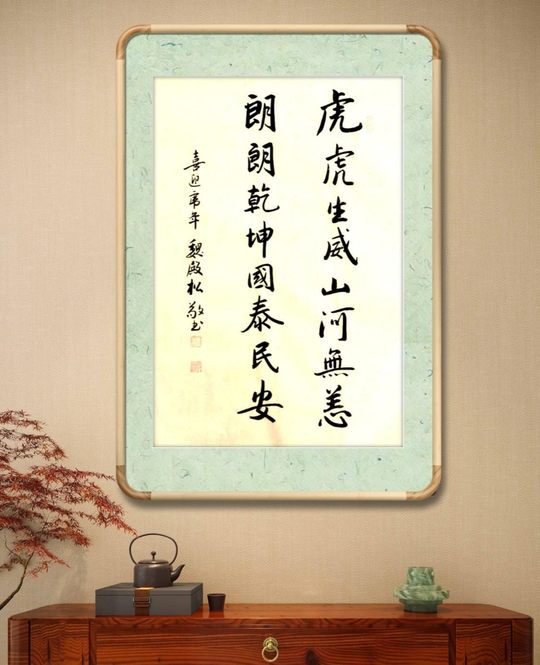 虎虎生威山河無恙
朗朗乾坤國泰民安
喜迎虎年 魏殿松敬书